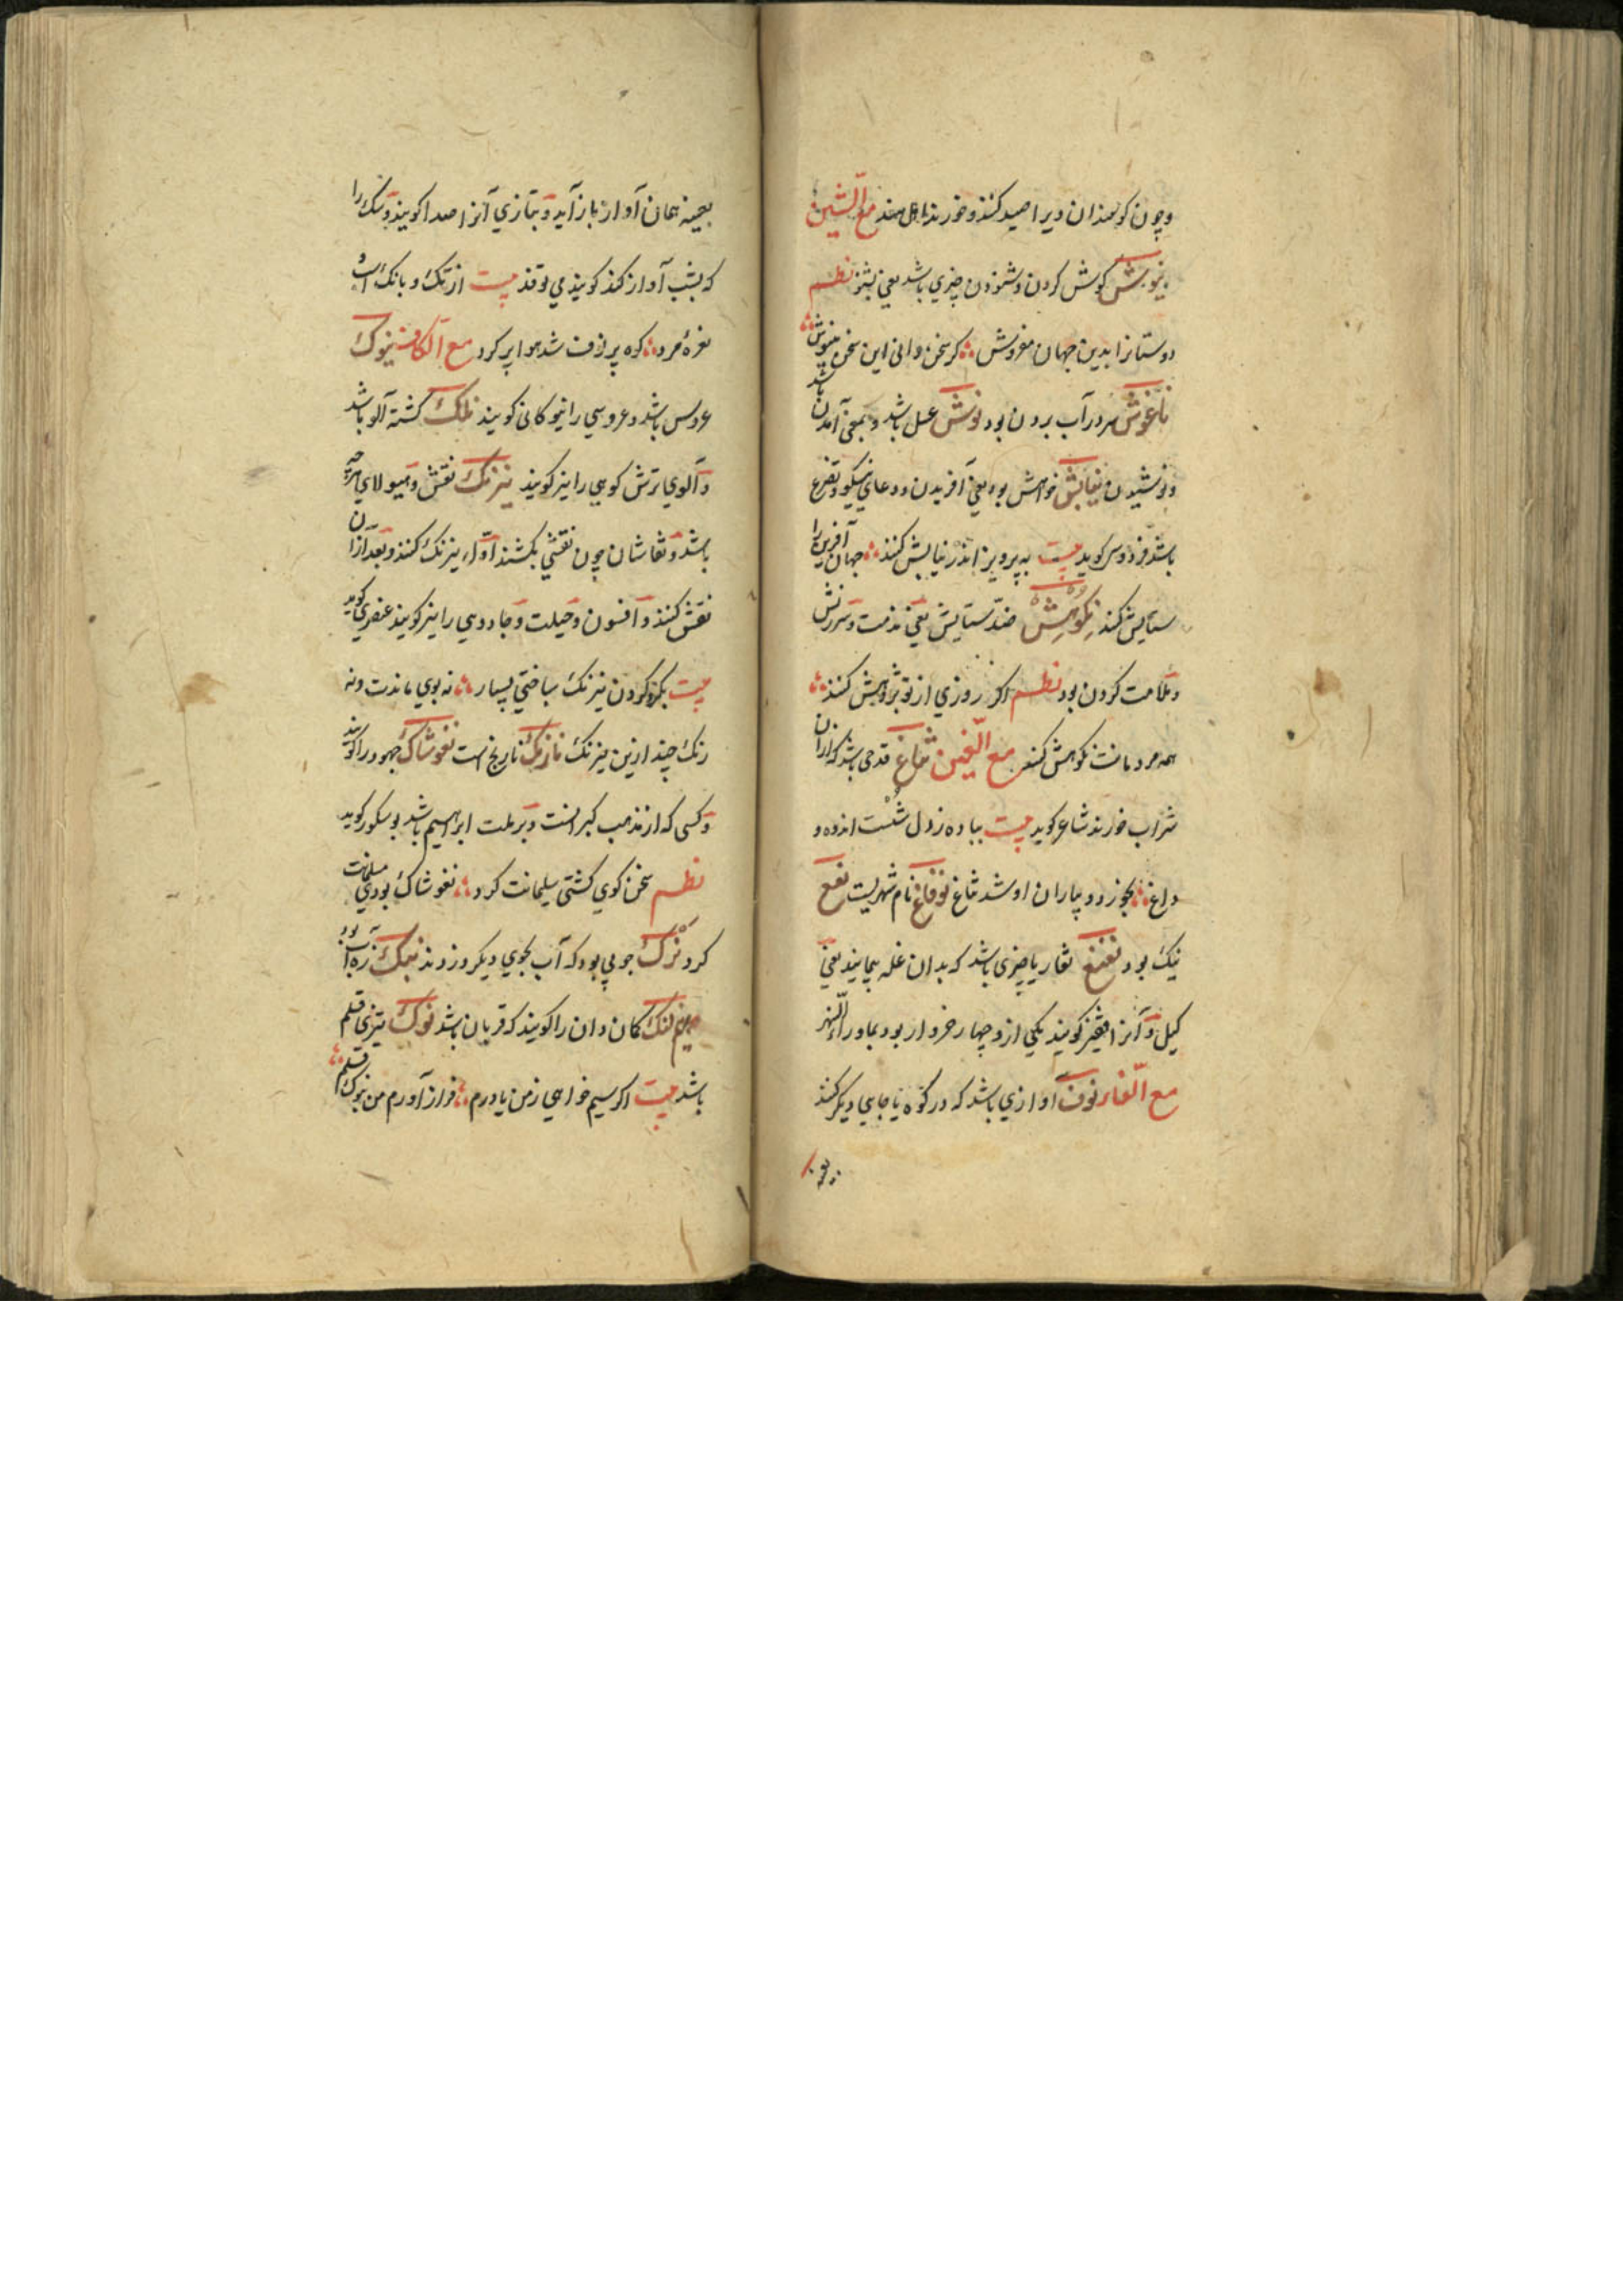 وچون کوسفندان ویرا صید کنند وخورند اهل هند مع الشین
نیوش کوش کردن وشنودن چیزی باشد یعنی بشنو نظم
دوستانرا بدین جهان مفروش کر سخن دانی این سخن بنیوش
ناغوش سر در آب بردن بود نوش عسل باشد وبمعنی آمدن باشد
ونوشیدن نیایش خواهش بود یعنی آفریدن ودعای نیکو وتضرع
باشد فردوسی کوید بیت به پرویز اندر نیایش کنند جهان آفرین را
ستایش کنند نکوهش ضد ستایش یعنی مذمت وسرزنش
وملامت کردن بود نظم اکر روزی از تو پژوهش کنند
همه مردمانت نکوهش کنند مع الغین نغاغ قدحی باشد که از آن
شراب خورند شاعر کوید بیت بباده زدل شست اندوه و
داغ بجوزد و یاران او شد نغاغ نوفاغ نام شهریست نغغ
نیک بود نغنغ تغار یا چیزی باشد که بدان غله پیمایند یعنی
کیل وآنرا قفیز کویند یکی ازو چهار خروار بود بماوراء النهر
مع الفاء نوف آوازی باشد که در کوه یا جایی دیکر کنند
بعینه
بعینه همان آواز باز آید وبتازی آنرا صدا کویند وسک را
که بشب آواز کند کویند می نوفد بیت از تک وبانک اسب
نعره مرد کوه پر نوف شد هوا پر کرد مع الکاف نیوک
عروس باشد وعروسی را نیوکانی کویند نلک کشته آلو باشد
وآلوی ترش کوهی را نیز کویند نیرنک نقش وهیولای هر چه
باشد ونقاشان چون نقشی بکشند اول نیرنک کنند وبعد از آن
نقش کنند وافسون وحیلت وجادویی را نیز کویند عنصری کوید
بیت بکرد کردن نیرنک ساختی بسیار نه بوی ماندت ونه
رنک چند ازین نیرنک نارنک نارنج است نغوشاک جهود را کویند
وکسی که از مذهب کبرانست وبر ملت ابراهیم باشد بوشکور کوید
نظم سخن کوی کشتی سلیمانت کرد نغوشاک بودی مسلمانت
کرد نزک جویی بود که آب بجوی دیکر وزدند نمک زه آب بود
نیم لنک کمان دان را کویند که قربان باشد نوک تیزی قلم
باشد بیت اکر سیم خواهی زمن یا درم فراز آورم من بنوک قلم